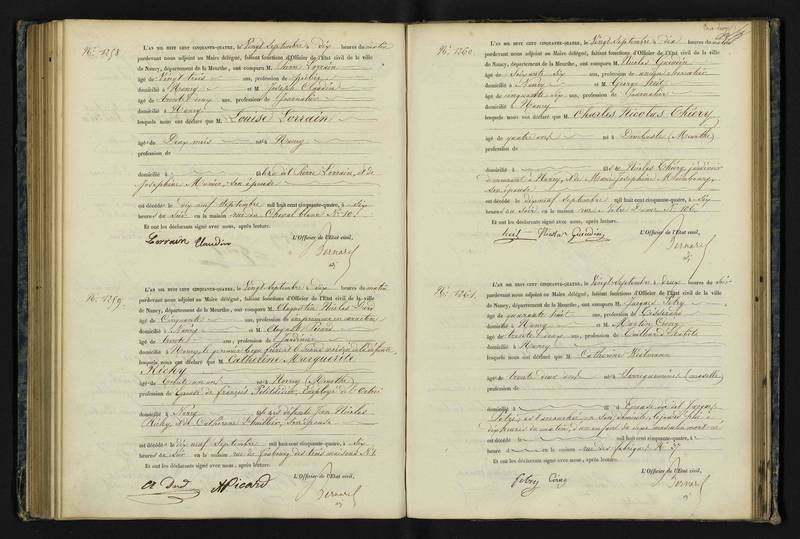 No. 1258
L'AN MIL HUIT CENT CINQUANTE-QUATRE, le Vingt Septembre à dix heures du matin
pardevant nous adjoint au Maire délégué, faisant fonctions d'Officier de l'Etat civil de la ville
de Nancy, département de la Meurthe, ont comparu M. Pierre Lorrain
âgé de Vingt trois ans, profession de
domicilié à Nancy et M. Joseph Claudin
âgé de trente cinq ans, profession de Journalier
domicilié à Nancy
lesquels nous ont déclaré que M. Louise Lorrain
âgé de Deux mois né à Nancy
profession de
domicilié à fille de Pierre Lorrain, et de
Joséphine Munier, son épouse
est décédé le dix neuf Septembre mil huit cent cinquante-quatre, à six
heures du soir en la maison rue du Cheval blanc No. 10
Et ont les déclarants signé avec nous, après lecture.
L'Officier de l'Etat civil,
Lorrain Claudin
Bernard
No. 1259
L'AN MIL HUIT CENT CINQUANTE-QUATRE, le Vingt Septembre à dix heures du matin
pardevant nous adjoint au Maire délégué, faisant fonctions d'Officier de l'Etat civil de la ville
de Nancy, département de la Meurthe, ont comparu M. Augustin Nicolas Dard
âgé de Cinquante ans, profession de imprimeur
domicilié à Nancy et M. Auguste Picard
âgé de trente ans, profession de Jardinier
domicilié à Nancy, le premier beau frère et le second voisin de la défunte
lesquels nous ont déclaré que M. Catherine Marguerite
Richy
âgé de trente un ans né à (Meurthe)
profession de Epouse de François Employé de l'Octroi
domicilié à Nancy défunts Jean Nicolas
Richy et de Catherine son épouse
est décédé le dix neuf Septembre mil huit cent cinquante-quatre, à six
heures du soir en la maison rue du faubourg des trois maisons No.
Et ont les déclarants signé avec nous, après lecture.
L'Officier de l'Etat civil,
Dard APicard
Bernard
No. 1260
L'AN MIL HUIT CENT CINQUANTE-QUATRE, le Vingt Septembre à dix heures du matin
pardevant nous adjoint au Maire délégué, faisant fonctions d'Officier de l'Etat civil de la ville
de Nancy, département de la Meurthe, ont comparu M. Nicolas Guidin
âgé de Soixante six ans, profession de ancien
domicilié à Nancy et M. George
âgé de cinquante six ans, profession de Journalier
domicilié à Nancy
lesquels nous ont déclaré que M. Charles Nicolas Thiéry
âgé de quatre ans né à Dombasle (Meurthe)
profession de
domicilié à fils de Nicolas Thiéry, jardinier
demeurant à Nancy, et de Marie Joséphine
son épouse
est décédé le dix neuf Septembre mil huit cent cinquante-quatre, à six
heures du soir en la maison rue No. 106
Et ont les déclarants signé avec nous, après lecture.
L'Officier de l'Etat civil,
Nicolas Guidin
Bernard
No. 1261
L'AN MIL HUIT CENT CINQUANTE-QUATRE, le Vingt Septembre à deux heures du soir
pardevant nous adjoint au Maire délégué, faisant fonctions d'Officier de l'Etat civil de la ville
de Nancy, département de la Meurthe, ont comparu M. Jacques Petry
âgé de quarante huit ans, profession de Tisserand
domicilié à Nancy et M. Martin
âgé de trente cinq ans, profession de
domicilié à Nancy
lesquels nous ont déclaré que M. Catherine
âgé de trente deux ans né à Sarreguemines (Moselle)
profession de
domicilié à Epouse du dit Jacques
Petry, est accouchée en son domicile, aujourd'hui à
dix heures du matin, d'un enfant du sexe masculin mort né
est décédé mil huit cent cinquante-quatre, à
heures en la maison rue des fabriques No.
Et ont les déclarants signé avec nous, après lecture.
L'Officier de l'Etat civil,
Petry
Bernard